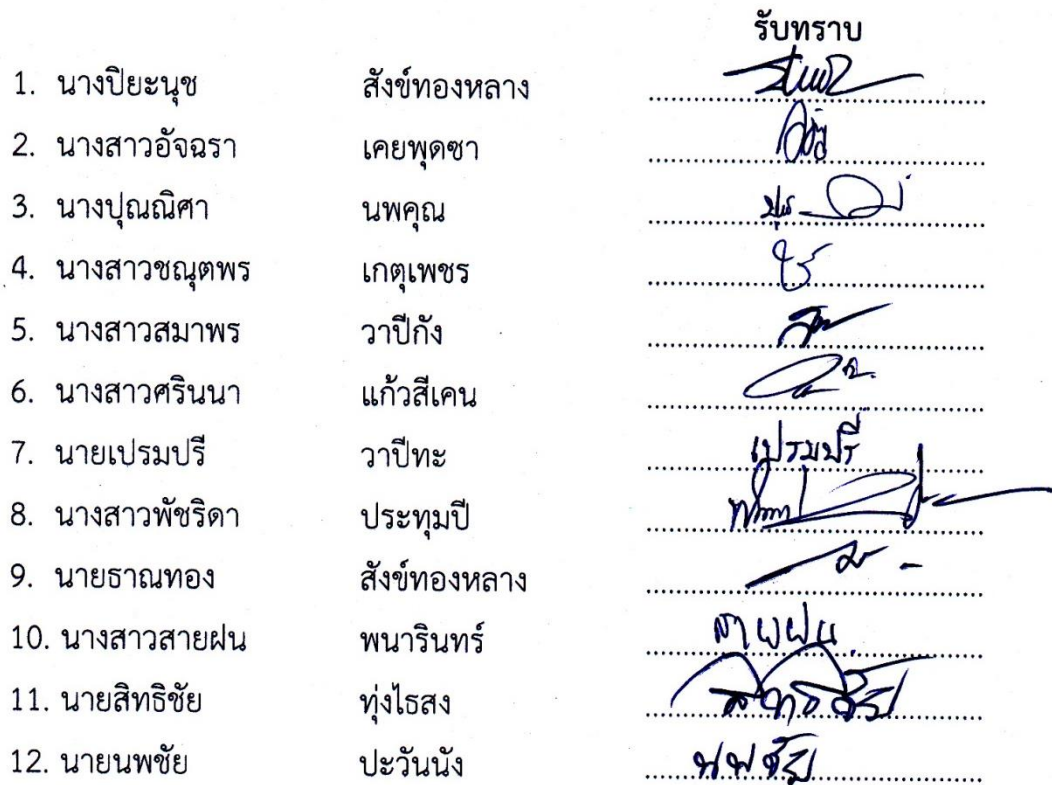 รับทราบ
1. นางปิยะนุช สังข์ทองหลาง
2. นางสาวอัจฉรา เคยพุดซา
3. นางปุณณิศา นพคุณ
4. นางสาวชณุตพร เกตุเพชร
5. นางสาวสมาพร วาปีกัง
6. นางสาวศรินนา แก้วสีเคน
7. นายเปรมปรี วาปีทะ เปรมปรี
8. นางสาวพัชริดา ประทุมปี
9. นายธาณทอง สังข์ทองหลาง
10. นางสาวสายฝน พนารินทร์ สายฝน
11. นายสิทธิชัย ทุ่งไธสง สิทธิชัย
12. นายนพชัย ปะวันนัง นพชัย